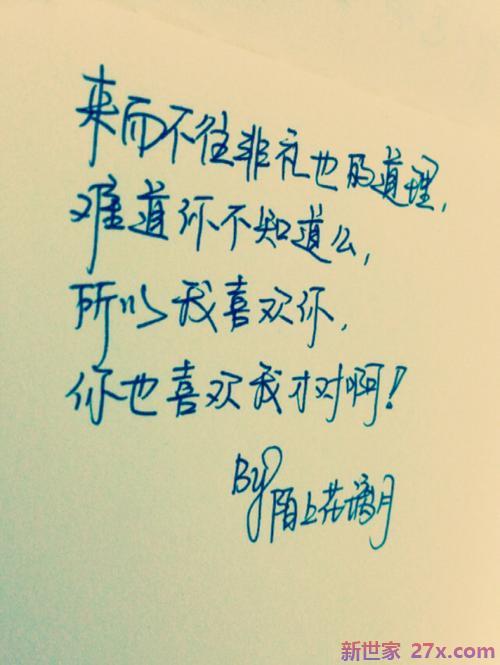 来而不往非礼也的道理，
难道你不知道么，
所以我喜欢你，
你也喜欢我才对啊！
By 陌上花满月
新世家 27x.com